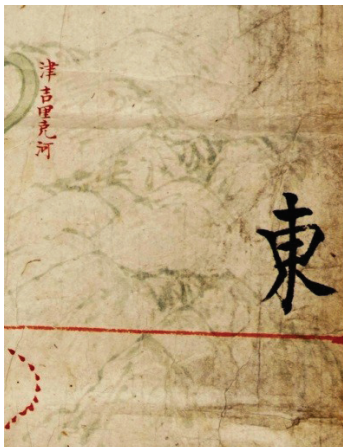 津吉里克河
東